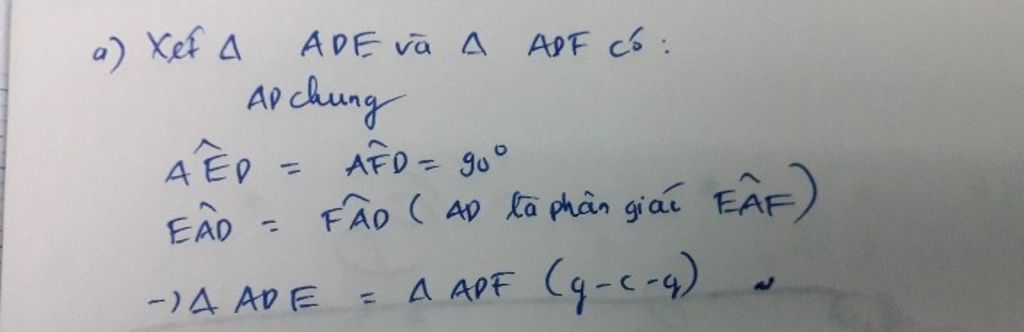 a) Xét Δ ADE và Δ ADF có :
AD chung
AÊD = AF̂D = 90°
EÂD = FÂD ( AD là phân giác EÂF)
-) Δ ADE = Δ ADF (g-c-g)